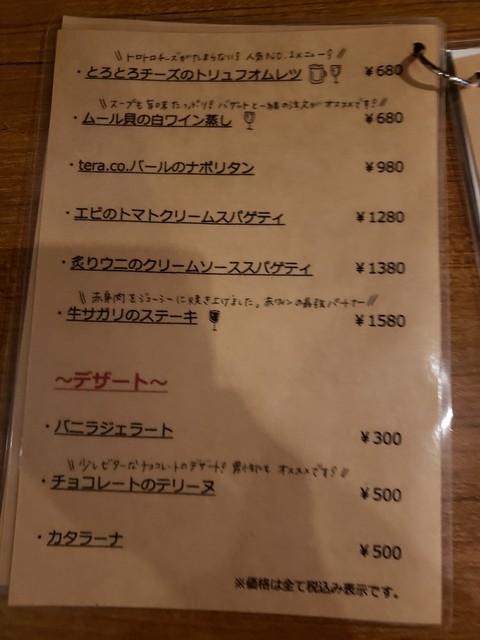 \\ トロトロチーズがたまらない! 人気NO.1メニュー! //
・とろとろチーズのトリュフオムレツ ¥680
\\ スープも旨味たっぷり! バゲットと一緒の注文がオススメです! //
・ムール貝の白ワイン蒸し ¥680
・tera.co.バールのナポリタン ¥980
・エビのトマトクリームスパゲティ ¥1280
・炙りウニのクリームソーススパゲティ ¥1380
\\ 赤身肉をジューシーに焼き上げました。赤ワインの最強パートナー //
・牛サガリのステーキ ¥1580
～デザート～
・バニラジェラート ¥300
\\ 少しビターなチョコレートのデザート! オススメです! //
・チョコレートのテリーヌ ¥500
・カタラーナ ¥500
※価格は全て税込み表示です。